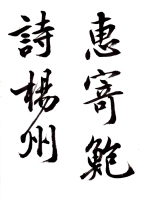 惠寄鮑
詩楊州